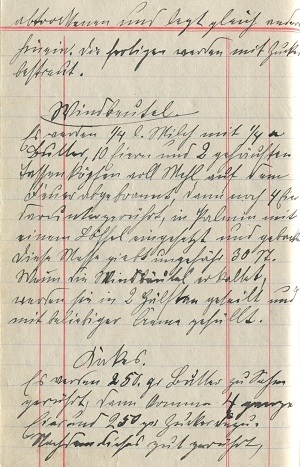 abtrocknen und legt gleich andere
hinein. Die fertigen werden mit Zucker
bestreut.
Windbeutel.
Es werden 1/4 l. Milch mit 1/4 a
Butter, 10 Eiern und 2 gehäuften
Tassenköpfen voll Mehl auf dem
Feuer abgebrannt, dann noch 4 Eier
daruntergerührt, in Palmin mit
einem Löffel eingesetzt und gebacken
Diese Masse giebt ungefähr 30 St.
Wenn die Windbeutel erkaltet,
werden sie in 2 Hälften geteilt und
mit beliebiger Creme gefüllt.
Kakes.
Es werden 250. gr Butter zu Sahne
gerührt, dann kommen 4 ganze
Eier und 250 gr Zucker dazu.
Nachdem dieses gut gerührt,